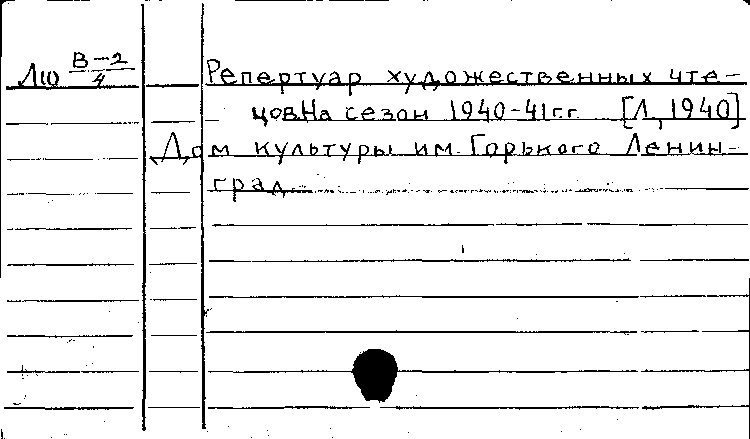 Лю В-2/4
Репертуар художественных чте-
цов. На сезон 1940-41 г.г. [Л, 1940]
Дом культуры им. Горького Ленин-
град